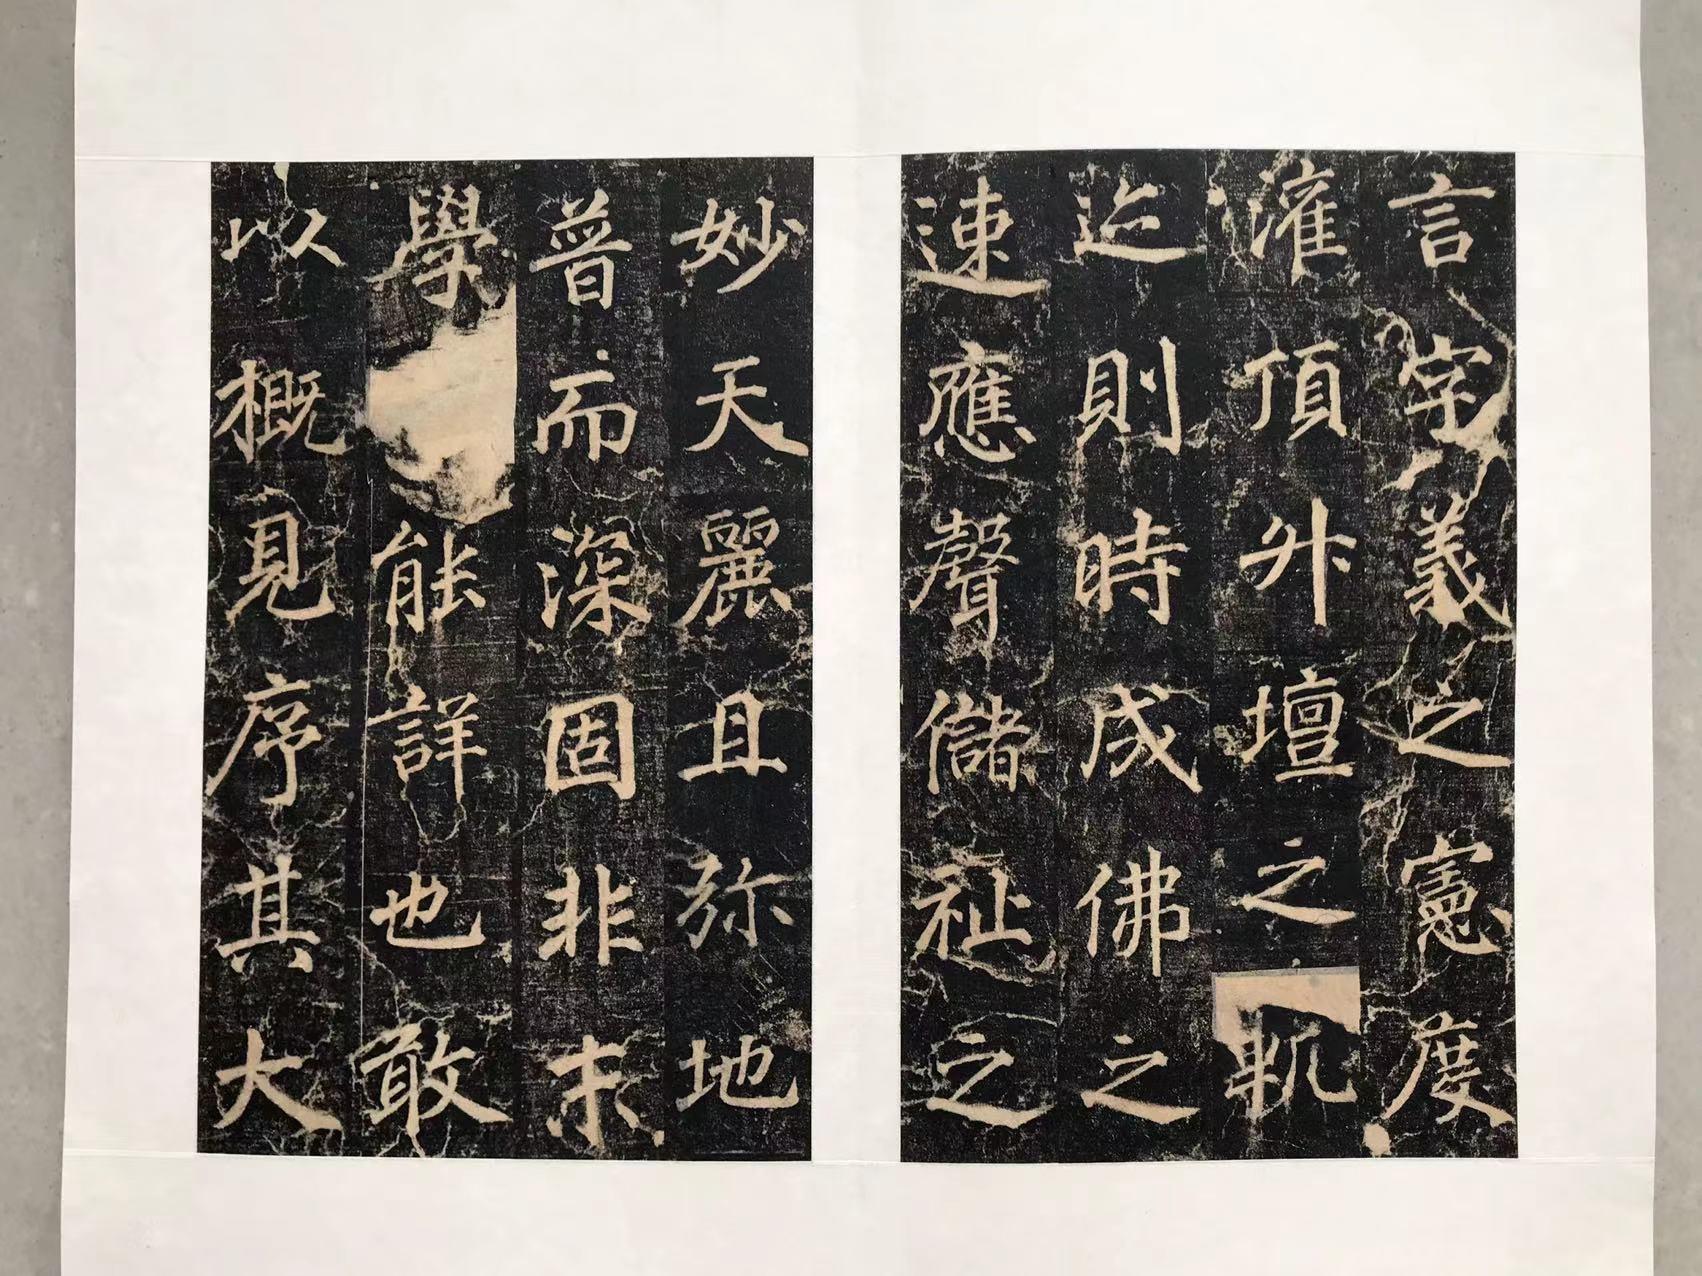 言字義之憲度
灌頂外壇之軌
迹則時成佛之
速應聲儲祉之
妙天麗且弥地
普而深固非末
學能詳也敢
以概見序其大